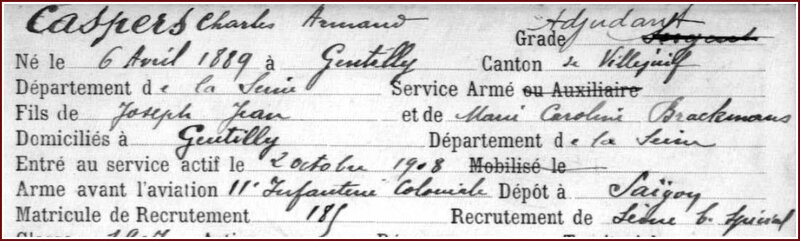 Caspers Charles Armand Grade Adjudant Sergent
Né le 6 Avril 1889 à Gentilly Canton de Villejuif
Département de la Seine Service Armé ou Auxiliaire
Fils de Joseph Jean et de Marie Caroline Brackmans
Domiciliés à Gentilly Département de la Seine
Entré au service actif le 2 octobre 1908 Mobilisé le
Arme avant l'aviation 11e Infanterie Coloniale Dépôt à Saïgon
Matricule de Recrutement 185 Recrutement de Seine b. spécial